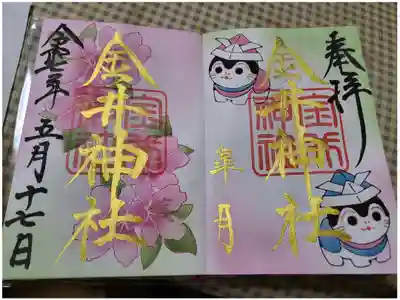 奉拝
金井神社
年 月
金井神社
年五月十七日